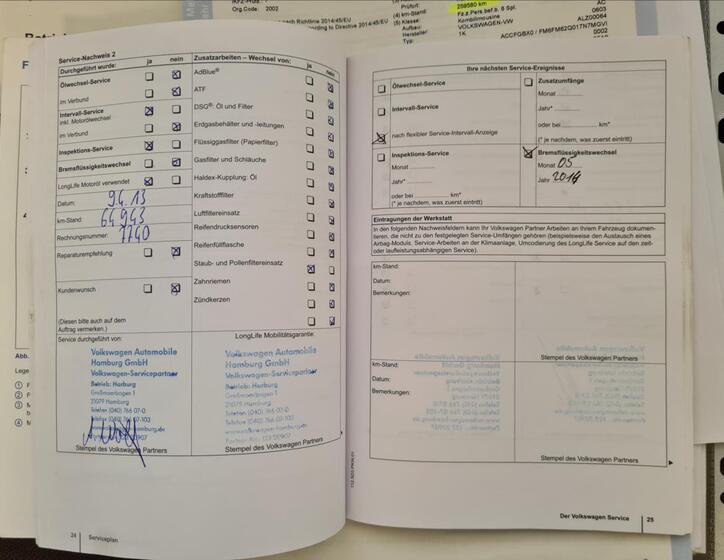 Org Code: 2002
259580 km
Fz.z.Pers.bef.b. 8 Spl.
Kombilimousine
VOLKSWAGEN-VW
1K
AC
0603
ALZ00064
ACCFGBX0 / FM6FM62Q017N7MGVI
0002
(4) km-Stand:
(5) Klasse:
Aufbau:
Hersteller:
Typ:
nach Richtlinie 2014/45/EU
ording to Directive 2014/45/EU
Service-Nachweis 2
Durchgeführt wurde: ja nein
Ölwechsel-Service
im Verbund
Intervall-Service
inkl. Motorölwechsel
im Verbund
Inspektions-Service
Bremsflüssigkeitswechsel
LongLife Motoröl verwendet
Datum: 9.4.13
km-Stand: 64943
Rechnungsnummer: 7740
Reparaturempfehlung
Kundenwunsch
(Diesen bitte auch auf dem
Auftrag vermerken.)
Service durchgeführt von:
Volkswagen Automobile
Hamburg GmbH
Volkswagen-Servicepartner
Betrieb: Harburg
Großmoorbogen 1
21079 Hamburg
Telefon (040) 766 07-0
Stempel des Volkswagen Partners
Zusatzarbeiten – Wechsel von: ja nein
AdBlue®
ATF
DSG®: Öl und Filter
Erdgasbehälter und -leitungen
Flüssiggasfilter (Papierfilter)
Gasfilter und Schläuche
Haldex-Kupplung: Öl
Kraftstofffilter
Luftfiltereinsatz
Reifendrucksensoren
Reifenfüllflasche
Staub- und Pollenfiltereinsatz
Zahnriemen
Zündkerzen
LongLife Mobilitätsgarantie:
Volkswagen Automobile
Hamburg GmbH
Volkswagen-Servicepartner
Betrieb: Harburg
Großmoorbogen 1
21079 Hamburg
Telefon (040) 766 07-0
Stempel des Volkswagen Partners
24 Serviceplan
Ihre nächsten Service-Ereignisse
Ölwechsel-Service
Intervall-Service
nach flexibler Service-Intervall-Anzeige
Inspektions-Service
Monat
Jahr*
oder bei km*
(* je nachdem, was zuerst eintritt)
Zusatzumfänge
Monat
Jahr*
oder bei km*
(* je nachdem, was zuerst eintritt)
Bremsflüssigkeitswechsel
Monat 05
Jahr 2014
Eintragungen der Werkstatt
In den folgenden Nachweisfeldern kann Ihr Volkswagen Partner Arbeiten an Ihrem Fahrzeug dokumen-
tieren, die nicht zu den festgelegten Service-Umfängen gehören (beispielsweise den Austausch eines
Airbag-Moduls, Service-Arbeiten an der Klimaanlage, Umcodierung des LongLife Service auf den zeit-
oder laufleistungsabhängigen Service).
km-Stand:
Datum:
Bemerkungen:
Stempel des Volkswagen Partners
km-Stand:
Datum:
Bemerkungen:
Stempel des Volkswagen Partners
Der Volkswagen Service 25
Abb.
Lege